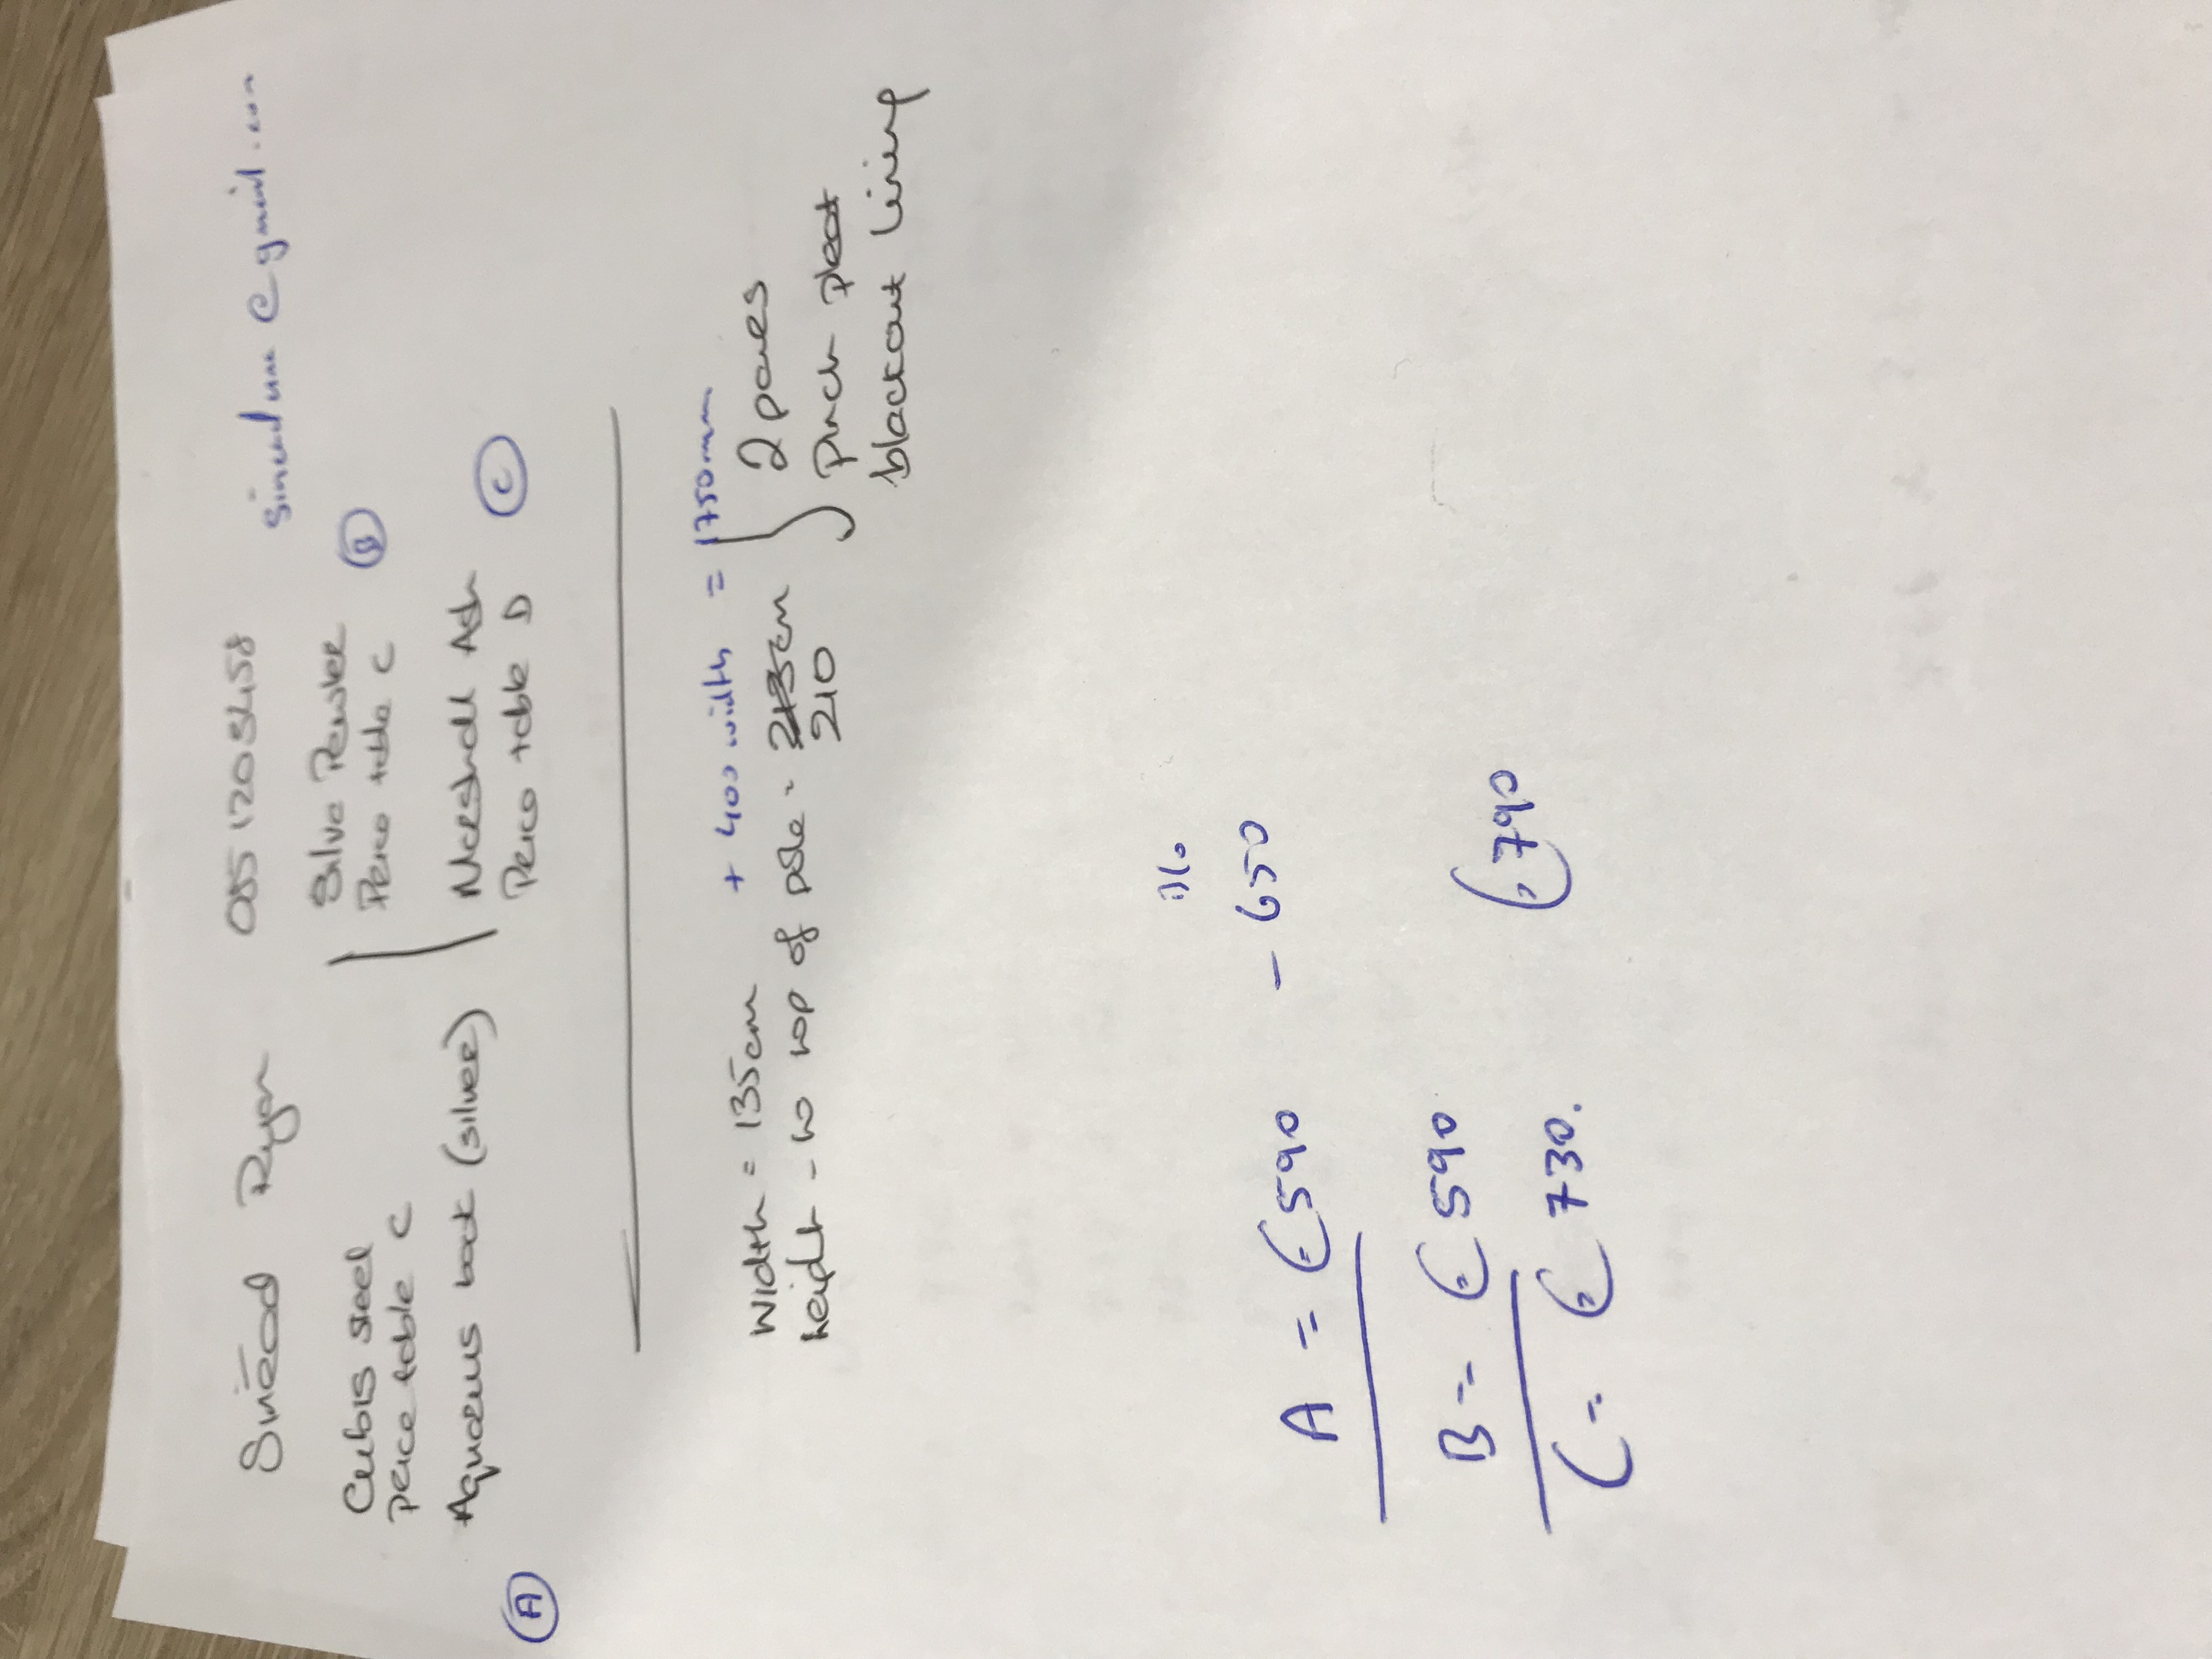 Sinéad Ryan 085 1205458
@gmail.com
Cubis Steel
Price table C
Aquarius back (silver)
(A)
Salvo Pewter
Price table C
(B)
Marshall Ash
Price table D
(C)
Width = 135cm + 400 width = 1750mm
height - to top of pole - 213cm
210
2 pairs
Pinch pleat
blackout lining
A = €590 - 650
B = €590
C = €730. €790